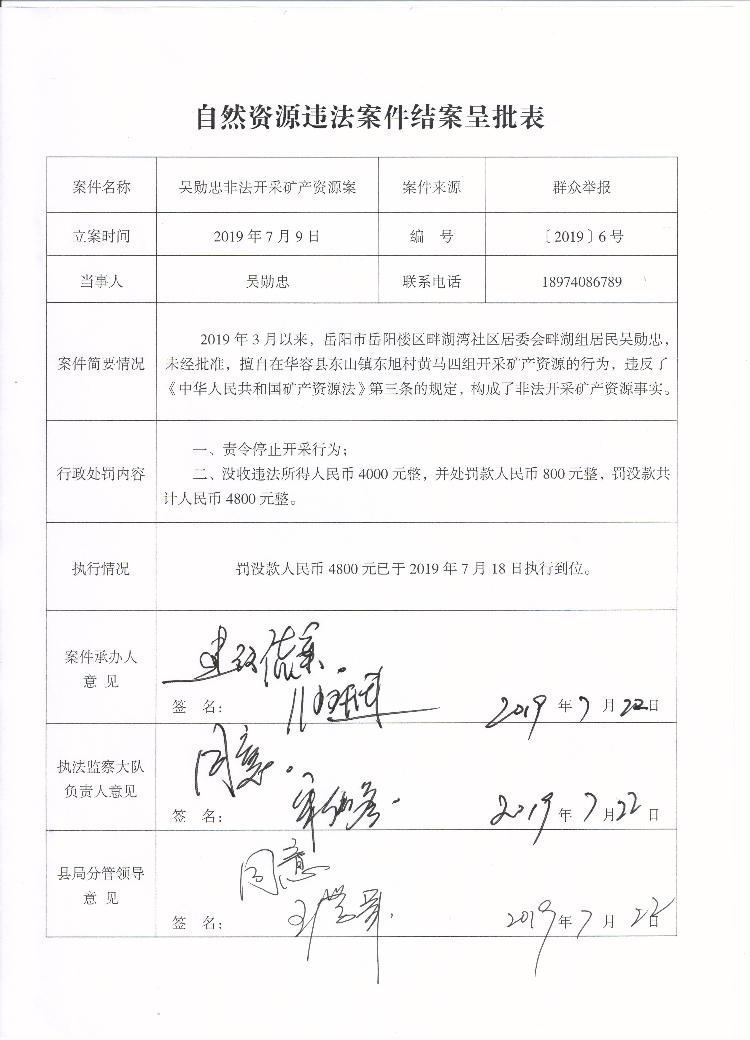 自然资源违法案件结案呈批表
案件名称 吴勋忠非法开采矿产资源案 案件来源 群众举报
立案时间 2019 年 7 月 9 日 编 号 〔2019〕6 号
当事人 吴勋忠 联系电话 18974086789
案件简要情况
2019 年 3 月以来，岳阳市岳阳楼区畔湖湾社区居委会畔湖组居民吴勋忠，
未经批准，擅自在华容县东山镇东旭村黄马四组开采矿产资源的行为，违反了
《中华人民共和国矿产资源法》第三条的规定，构成了非法开采矿产资源事实。
行政处罚内容
一、责令停止开采行为；
二、没收违法所得人民币 4000 元整，并处罚款人民币 800 元整，罚没款共
计人民币 4800 元整。
执行情况 罚没款人民币 4800 元已于 2019 年 7 月 18 日执行到位。
案件承办人
意 见
建议结案.
签 名： 2019 年 7 月 22 日
执法监察大队
负责人意见
同意.
签 名： 2019 年 7 月 22 日
县局分管领导
意 见
同意
签 名： 2019 年 7 月 22 日